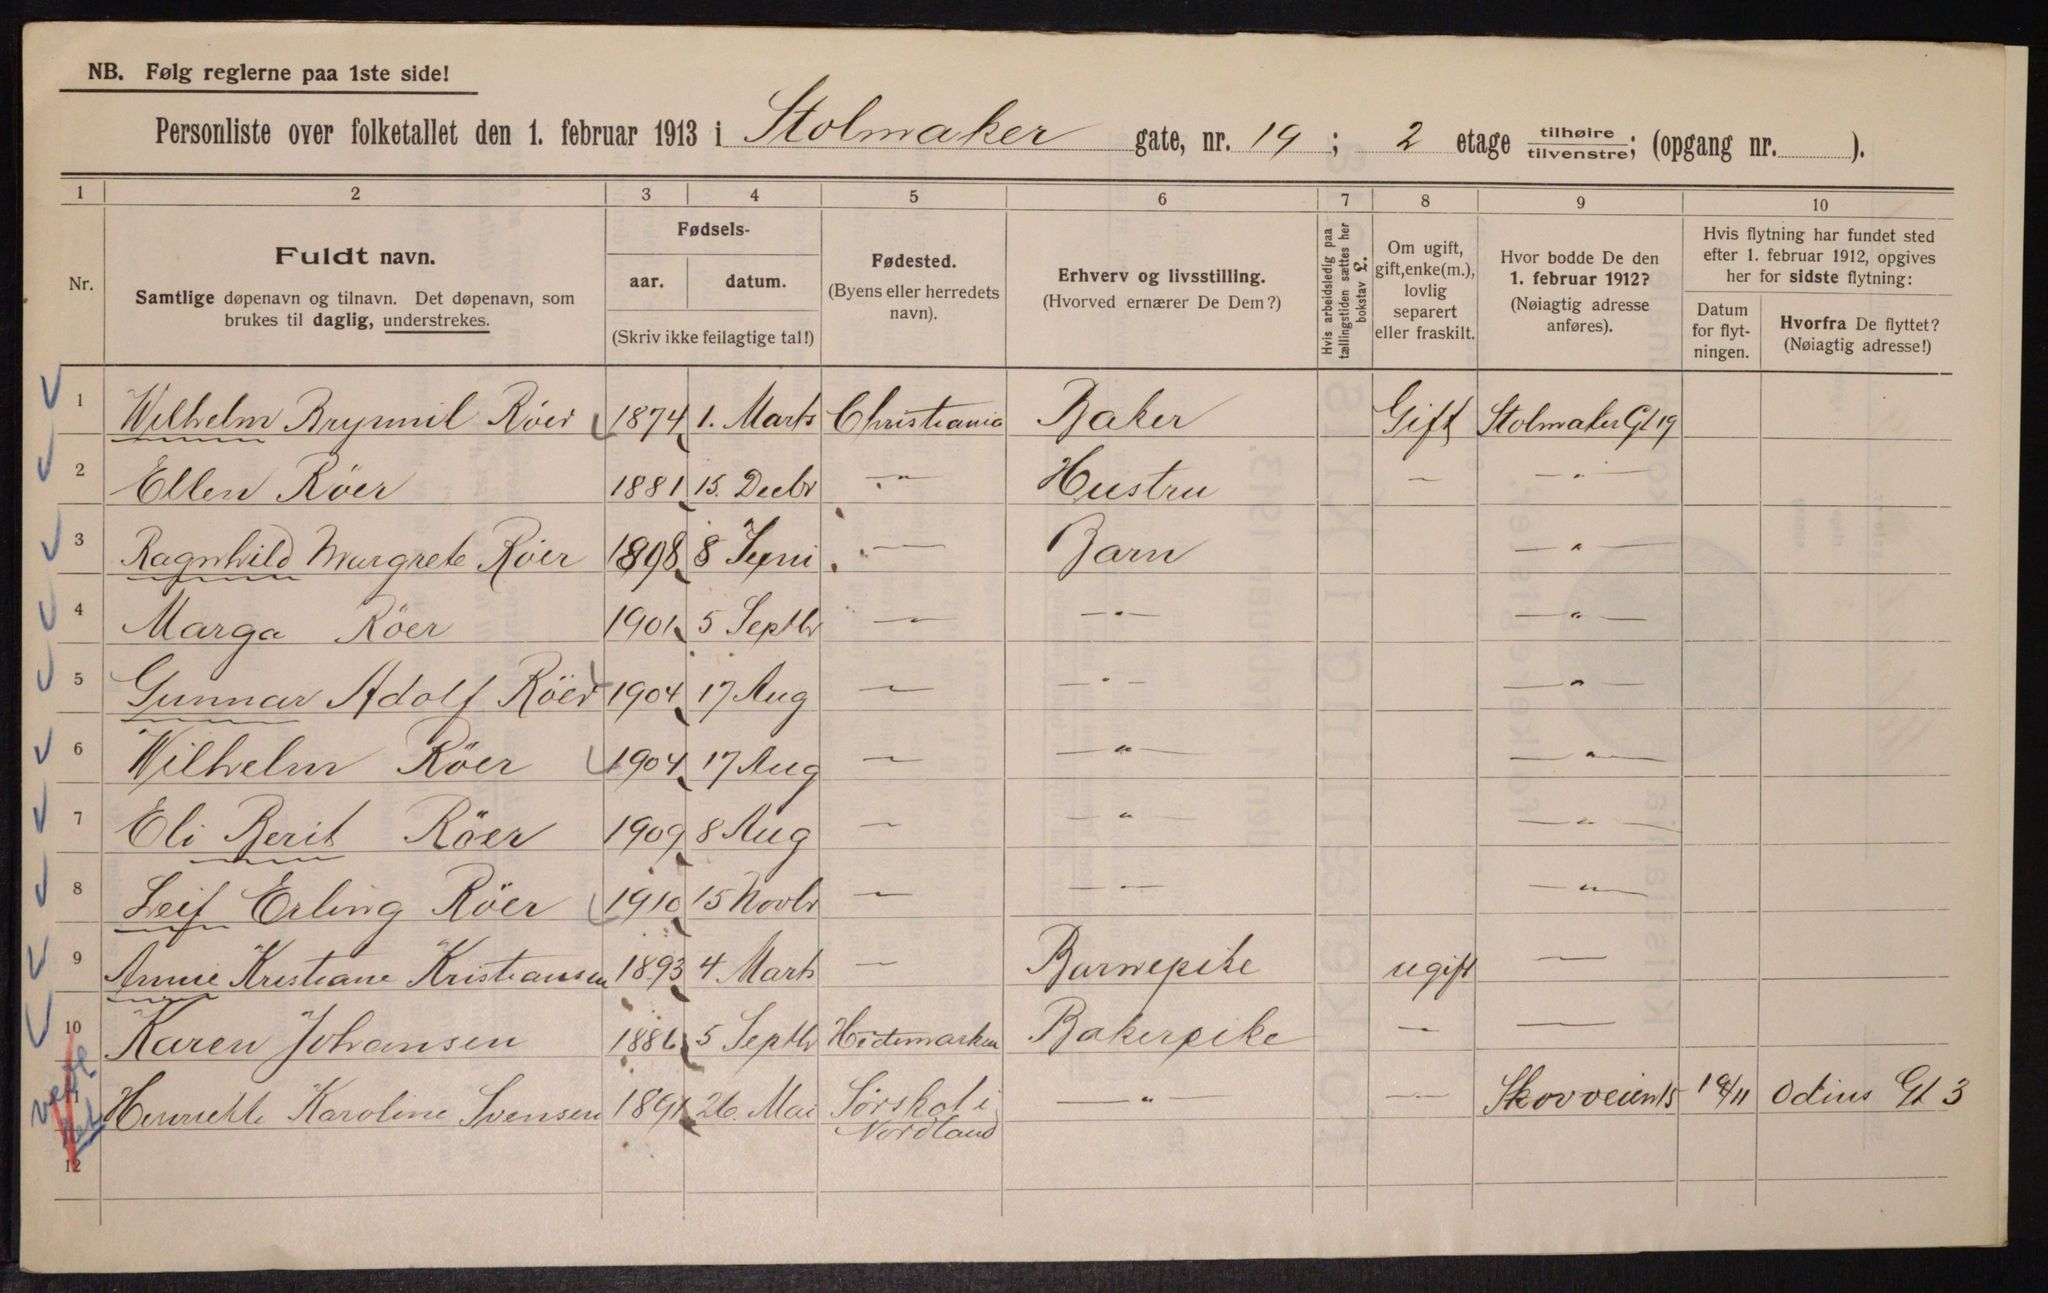 NB. Følg reglerne paa 1ste side!
Personliste over folketallet den 1. februar 1913 i Stolmaker gate, nr. 19; 2 etage tilhøire/tilvenstre; (opgang nr. ).
1 2 3 4 5 6 7 8 9 10
Nr.
Fuldt navn.
Samtlige døpenavn og tilnavn. Det døpenavn, som
brukes til daglig, understrekes.
Fødsels-
aar. datum.
(Skriv ikke feilagtige tal!)
Fødested.
(Byens eller herredets
navn).
Erhverv og livsstilling.
(Hvorved ernærer De Dem?)
Hvis arbeidsledig paa
tællingstiden sættes her
bokstav L.
Om ugift,
gift, enke(m.),
lovlig
separert
eller fraskilt.
Hvor bodde De den
1. februar 1912?
(Nøiagtig adresse
anføres).
Hvis flytning har fundet sted
efter 1. februar 1912, opgives
her for sidste flytning:
Datum
for flyt-
ningen.
Hvorfra De flyttet?
(Nøiagtig adresse!)
1 Wilhelm Brynnil Röer 1874 1. Marts Christiania Baker Gift Stolmaker Gt 19
2 Ellen Röer 1881 15. Decbr — " — Hustru — — " —
3 Ragnhild Margrete Röer 1898 8 Juni — Barn — " —
4 Marga Röer 1901 5 Septbr — — " — — " —
5 Gunnar Adolf Röer 1904 17 Aug — — " — — " —
6 Wilhelm Röer 1904 17 Aug — — " — — " —
7 Eli Berit Röer 1909 8 Aug — — " — — " —
8 Leif Erling Röer 1910 15 Novbr — — " — — " —
9 Annie Kristiane Kristiansen 1893 4 Marts — Barnepike ugift —
10 Karen Johansen 1886 5 Septbr Hedemarken Bakerpike — —
11 Henriette Karoline Svensen 1891 26. Mai Sørskot i — " — — Skovveien 15 19/11 Odins Gt 3
Nordland
12